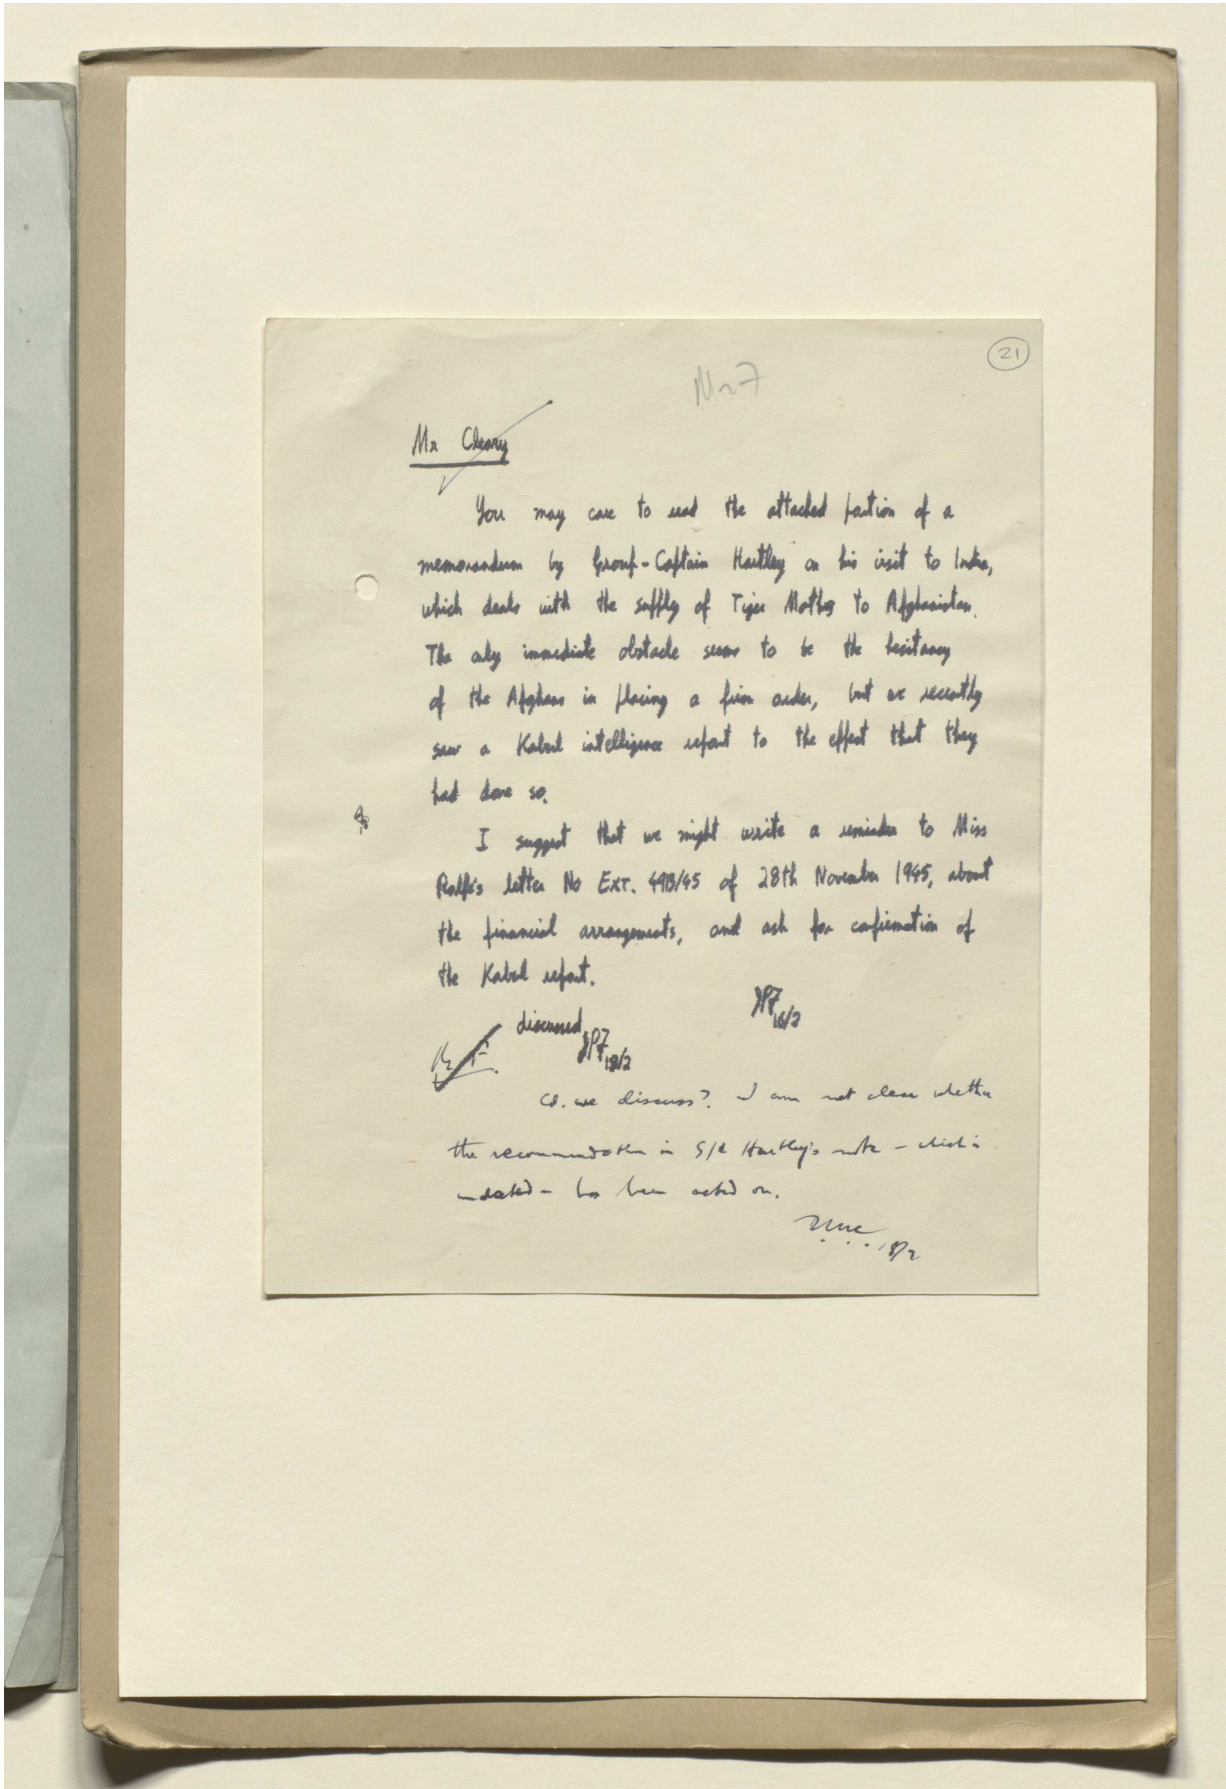 21
Mr Cleary
You may care to read the attached portion of a
memorandum by Group-Captain Hartley on his visit to India,
which deals with the supply of Tiger Moths to Afghanistan.
The only immediate obstacle seems to be the hesitancy
of the Afghans in placing a firm order, but we recently
saw a Kabul intelligence report to the effect that they
had done so.
I suggest that we might write a reminder to Miss
Rolfe's letter No Ext. /45 of 28th November 1945, about
the financial arrangements, and ask for confirmation of
the Kabul report.
16/2
discussed
18/2
Cd. we discuss? I am not clear whether
the recommendation in G/C Hartley's note – which is
undated – has been acted on.
18/2